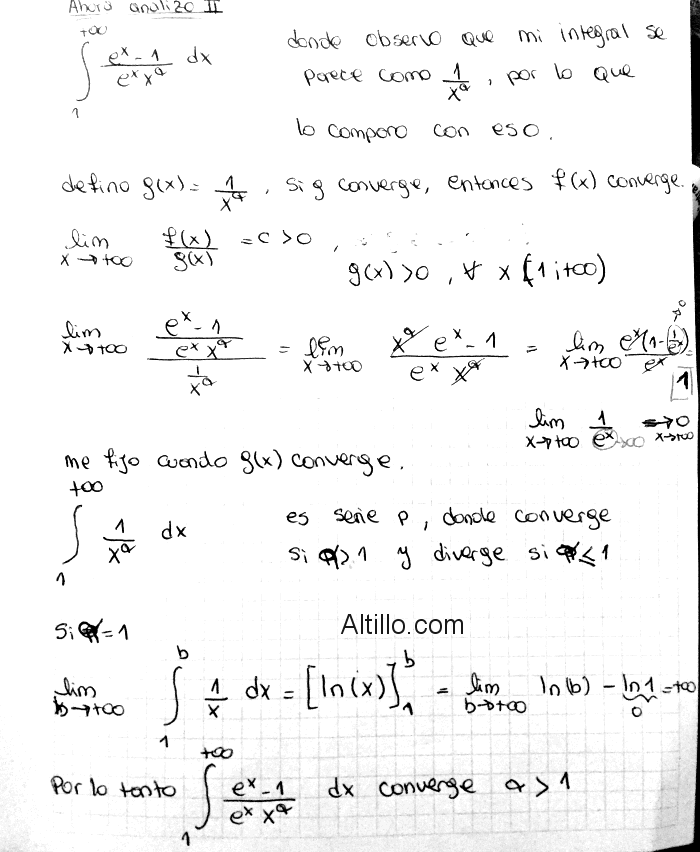 Ahora analizo II
∫₁^{+∞} (e^x - 1)/(e^x x^α) dx donde observo que mi integral se
parece como 1/x^α, por lo que
lo comparo con eso.
defino g(x) = 1/x^α, si g converge, entonces f(x) converge.
lim x→+∞ f(x)/g(x) = c > 0,
g(x) > 0, ∀ x [1; +∞)
lim x→+∞ ((e^x - 1)/(e^x x^α))/(1/x^α) = lim x→+∞ (x^α e^x - 1)/(e^x x^α) = lim x→+∞ e^x(1 - 1/e^x)/e^x = 1
lim x→+∞ 1/e^x → 0 x→+∞
me fijo cuando g(x) converge.
∫₁^{+∞} 1/x^α dx es serie p, donde converge
si α > 1 y diverge si α ≤ 1
Si α = 1
Altillo.com
lim b→+∞ ∫₁^b 1/x dx = [ln(x)]₁^b = lim b→+∞ ln(b) - ln 1 = +∞
0
Por lo tanto ∫₁^{+∞} (e^x - 1)/(e^x x^α) dx converge α > 1